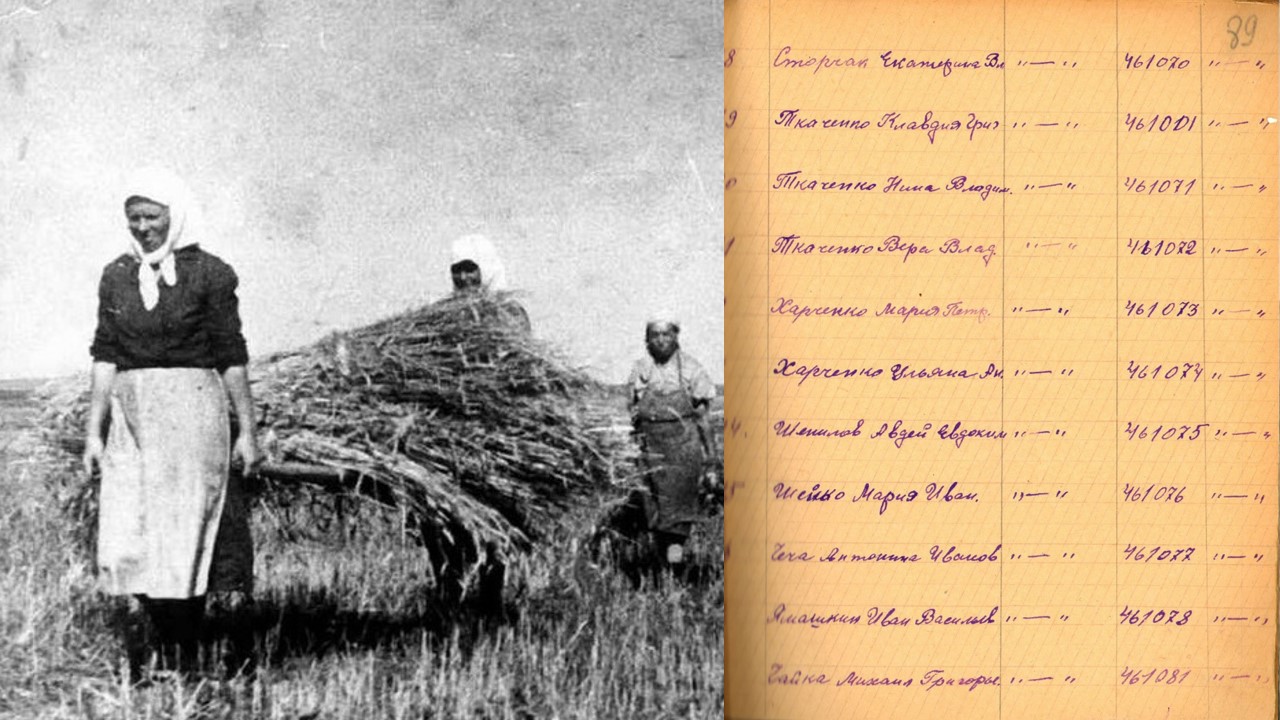 89
8 Сторчак Екатерина Вл " — " 461070 " — "
9 Ткаченко Клавдия Григ " — " 461001 " — "
Ткаченко Нина Владим. " — " 461071 " — "
1 Ткаченко Вера Влад. " — " 461072 " — "
Харченко Мария Петр. " — " 461073 " — "
Харченко Ульяна Ан. " — " 461074 " — "
4. Шепилов Авдей Евдоким " — " 461075 " — "
5 Шейко Мария Иван. " — " 461076 " — "
Чеча Антонина Иванов " — " 461077 " — "
Ямашкин Иван Васильев " — " 461078 " — "
Чайка Михаил Григорье. " — " 461081 " — "